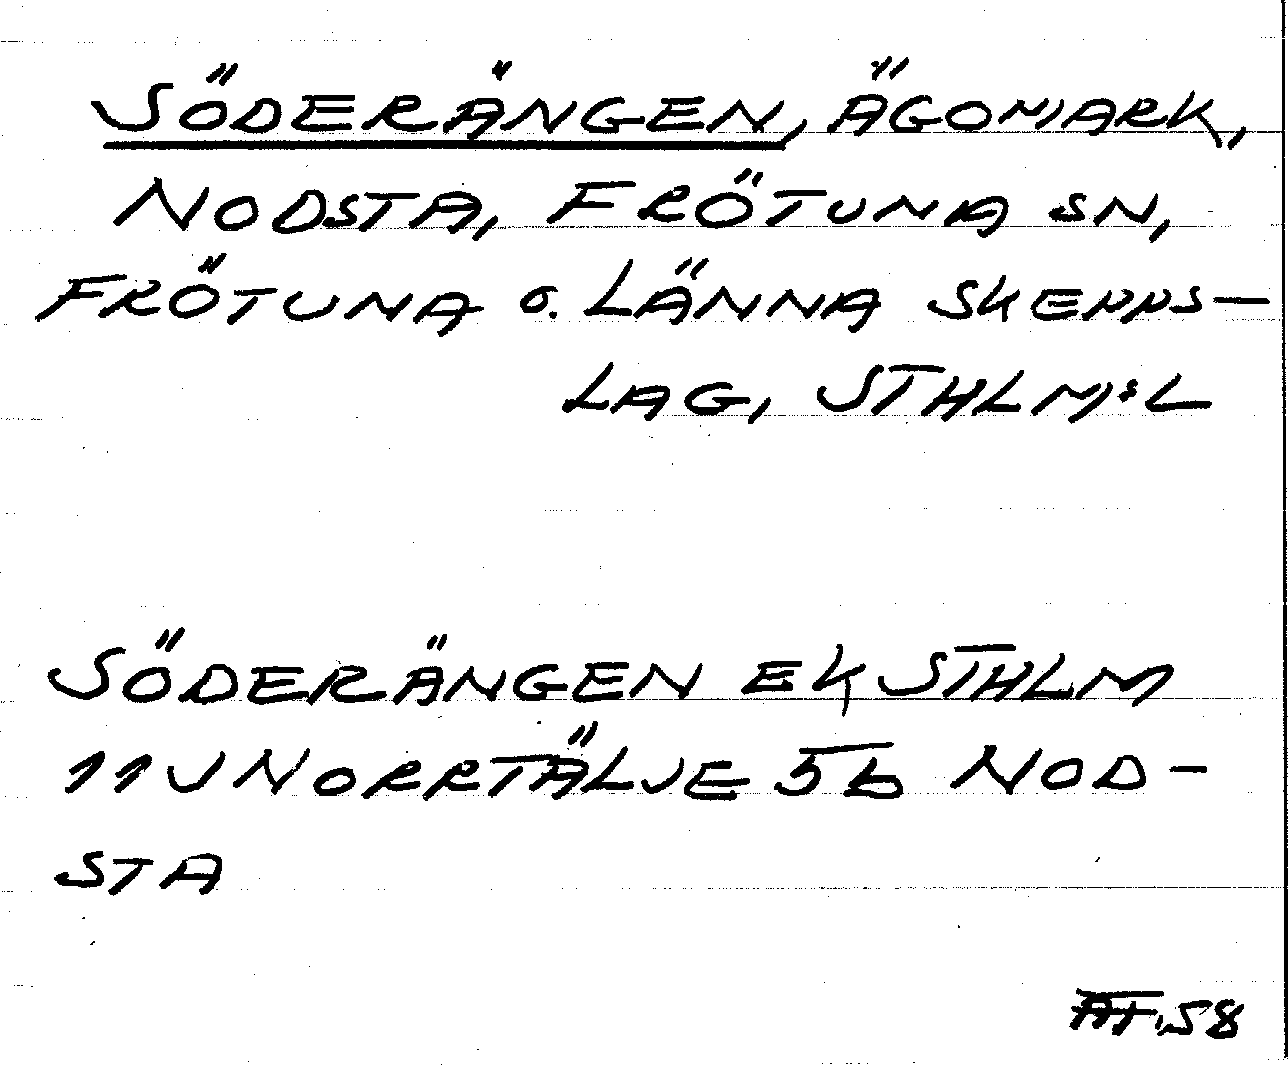 SÖDERÄNGEN, ÄGOMARK,
NODSTA, FRÖTUNA SN,
FRÖTUNA O. LÄNNA SKEPPS-
LAG, STHLM:S L
SÖDERÄNGEN EK STHLM
11 V NORRTÄLJE 5b NOD-
STA
58